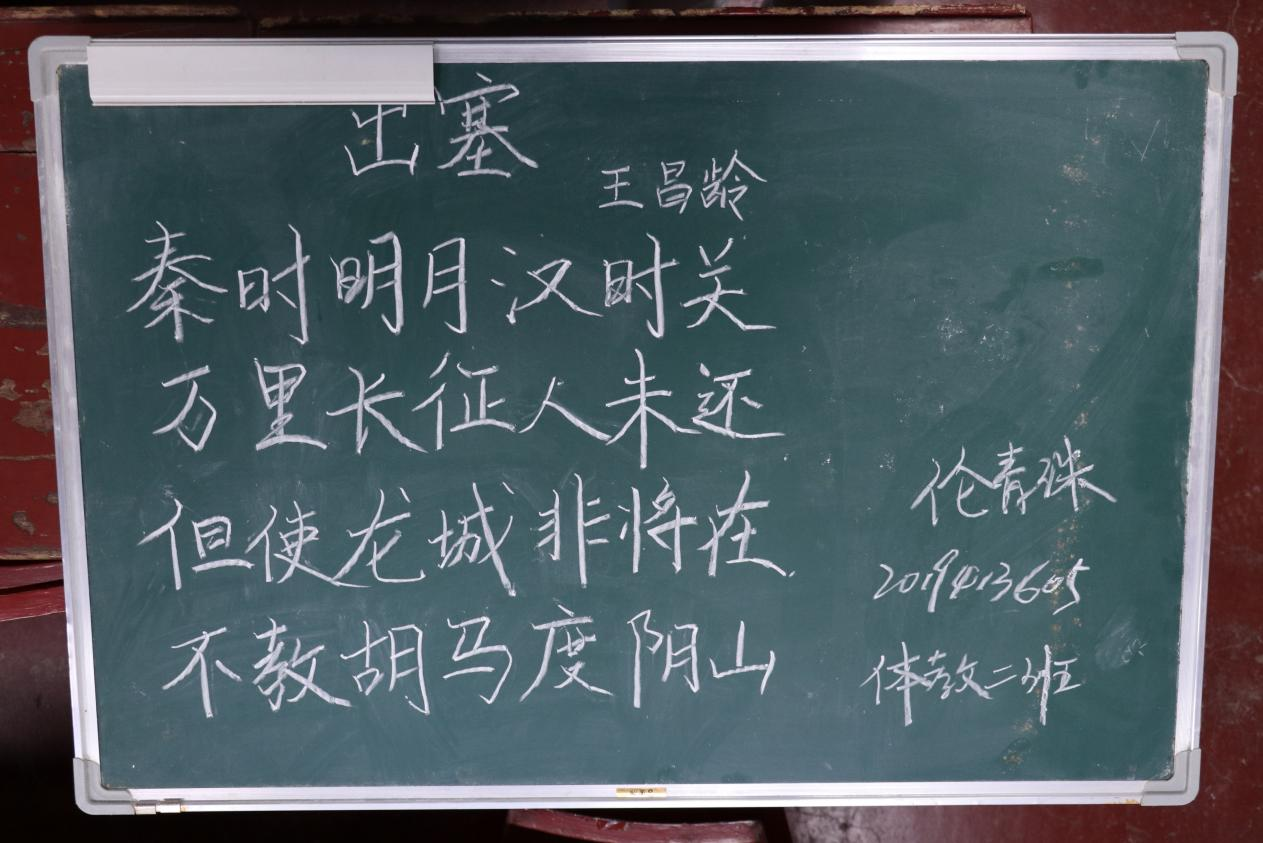 出塞
王昌龄
秦时明月汉时关
万里长征人未还
但使龙城非将在
不教胡马度阴山
伦青珠
2019413605
体教二班